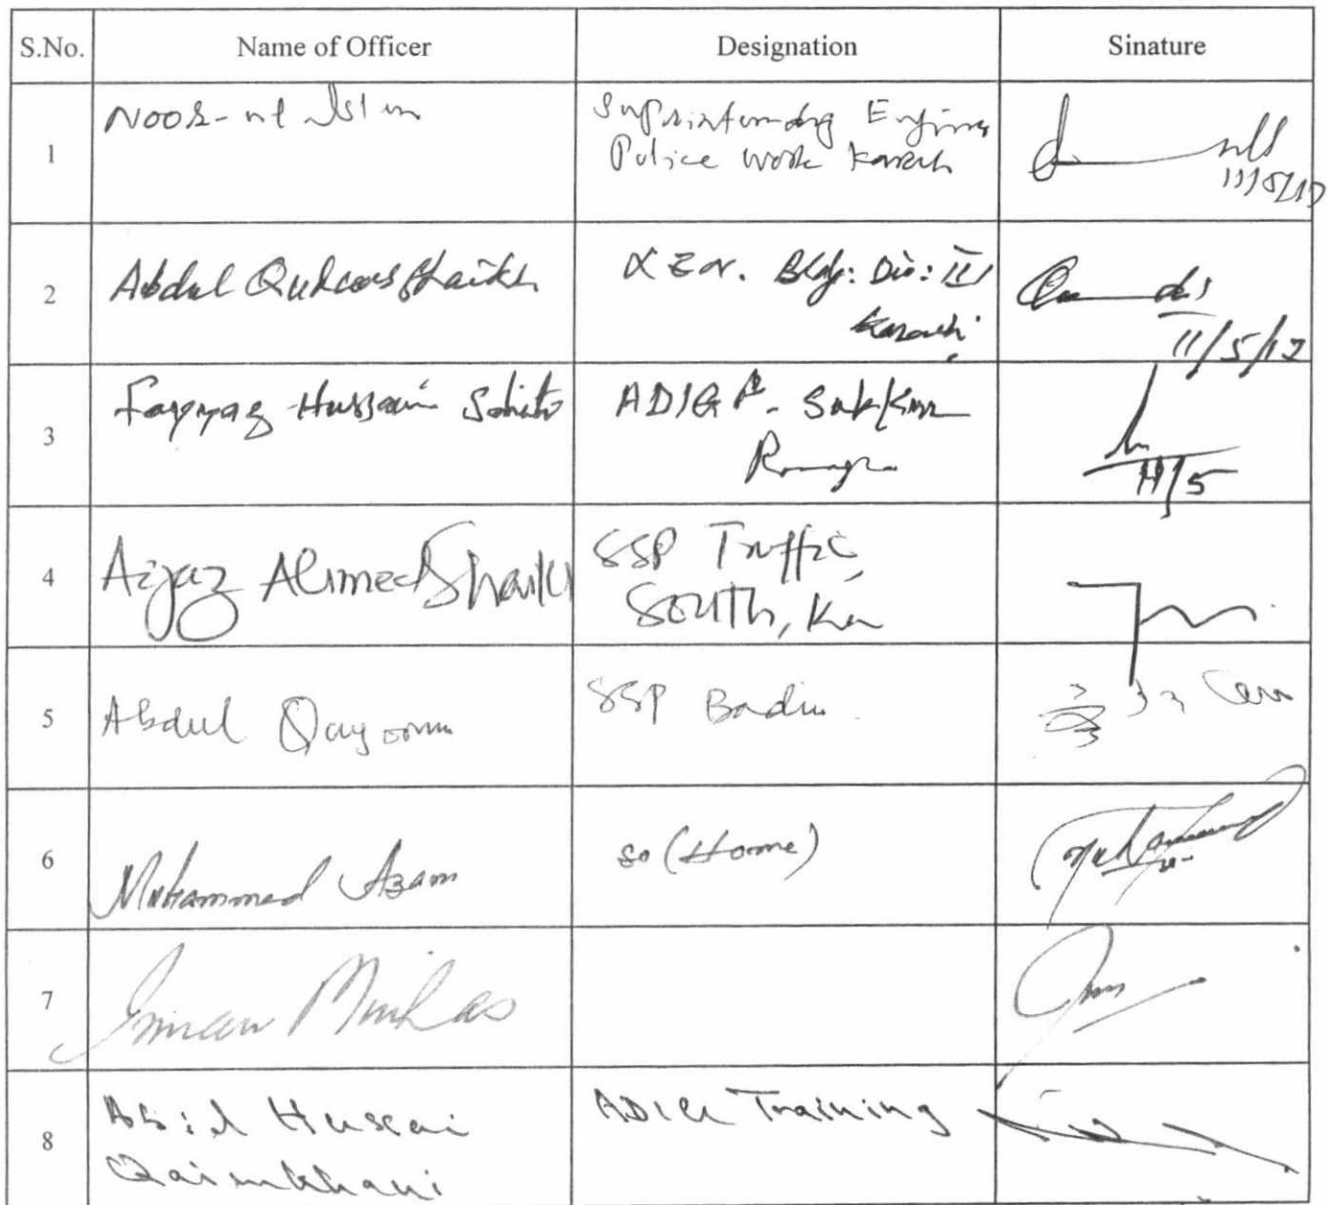 S.No. Name of Officer Designation Sinature
1 Noor-ul Islam Suprintending Engineer
Police work Karachi
11/5/17
2 Abdul Qudoos Shaikh XEN. Bldg: Div: III
Karachi
11/5/17
3 Fayyaz Hussain ADIGP. Sukkur
Range
11/5
4 Aijaz Ahmed Shaikh SSP Traffic,
South, Kar
5 Abdul Qayoom SSP Badin
6 Muhammad Azam SO (Home)
7 Imran Minhas
8 Abid Husain ADIG Training
Qaimkhani